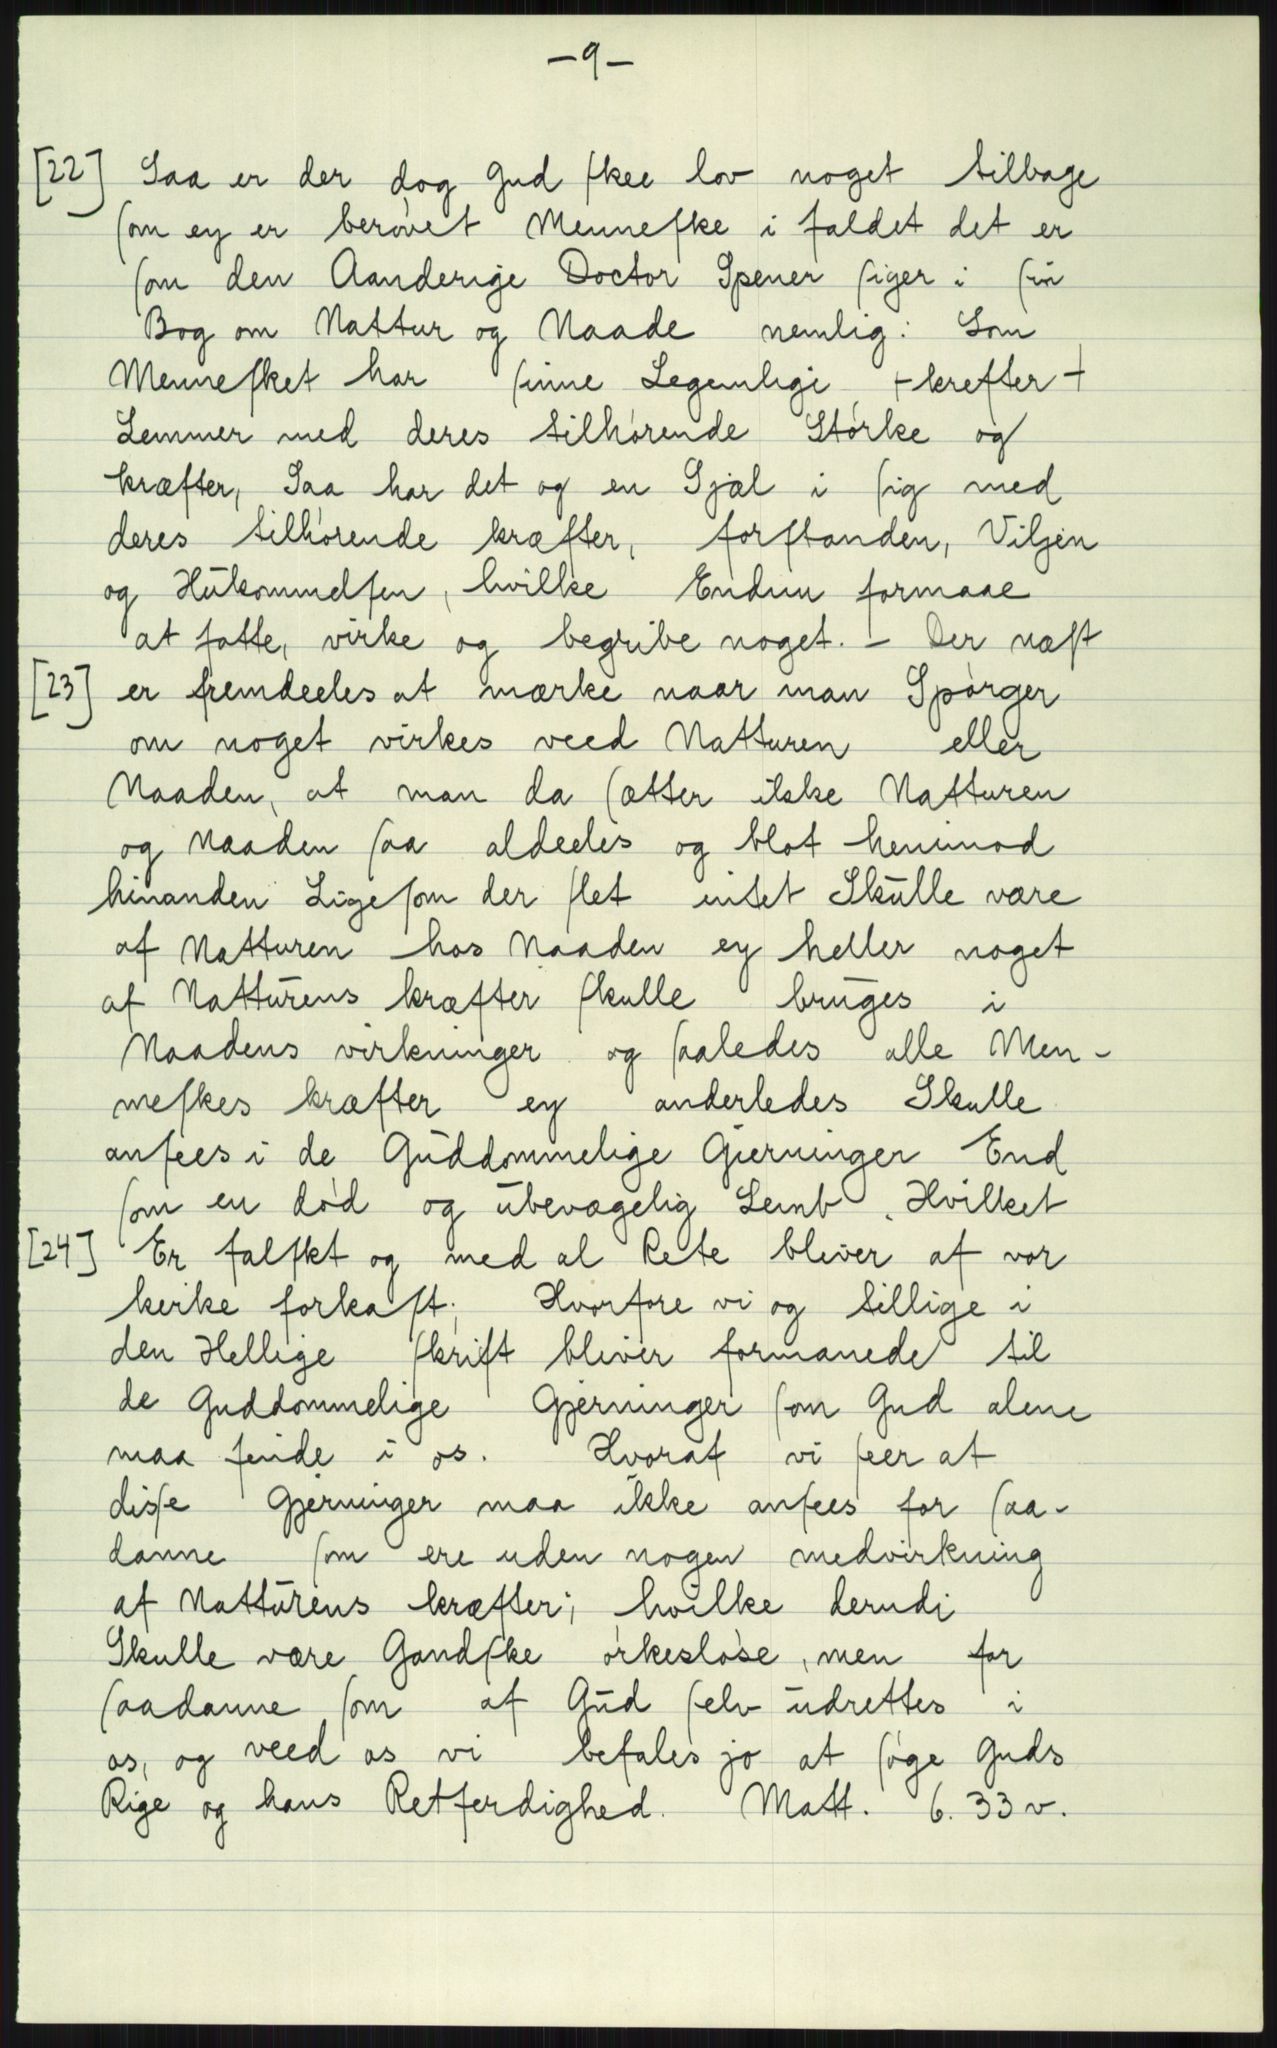 -9-
[22] Saa er der dog Gud ſkee lov noget tilbage
ſom ey er berøvet Menneſke i faldet det er
ſom den Aanderige Doctor Spener ſiger i ſin
Bog om Nattur og Naade nemlig: Som
Menneſket har ſinne Legemlige +krefter+
Lemmer med deres tilhørende Størke og
kræfter, Saa har det og en Sjæl i ſig med
deres tilhørende kræfter, forſtanden, Viljen
og Hūkommelſen, hvilke Endnu formaae
at fatte, virke og begribe noget. - Der næſt
[23] er fremdeeles at mærke naar man Spørger
om noget virkes veed Natturen eller
Naaden, at man da ſætter ikke Natturen
og Naaden ſaa aldeeles og blot henimod
hinanden Ligeſom der ſlet intet Skūlle være
af Natturen hos Naaden ey heller noget
af Nattūrens kræfter ſkulle brūges i
Naadens virkninger og ſaaledes alle Men-
neſkes kræfter ey anderledes Skulle
anſees i de Gūddommelige Gierninger End
ſom en død og ūbevægelig Lemb. Hvilket
[24] Er falſkt og med al Rete bliver af vor
kirke forkaſt; Hvorfore vi og tillige i
den Hellige ſkrift bliver formanede til
de Guddommelige Gjerninger ſom Gud alene
maa finde i os. Hvoraf vi ſeer at
disſe Gjerninger maa ikke anſees for ſaa-
danne ſom ere uden nogen medvirkning
af Nattūrens kræfter; hvilke derudi
Skulle være Gandſke ørkesløse, men for
ſaadanne ſom af Gūd ſelv ūdrettes i
os, og veed os vi befales jo at ſøge Guds
Rige og hans Retferdighed. Matt. 6. 33 v.